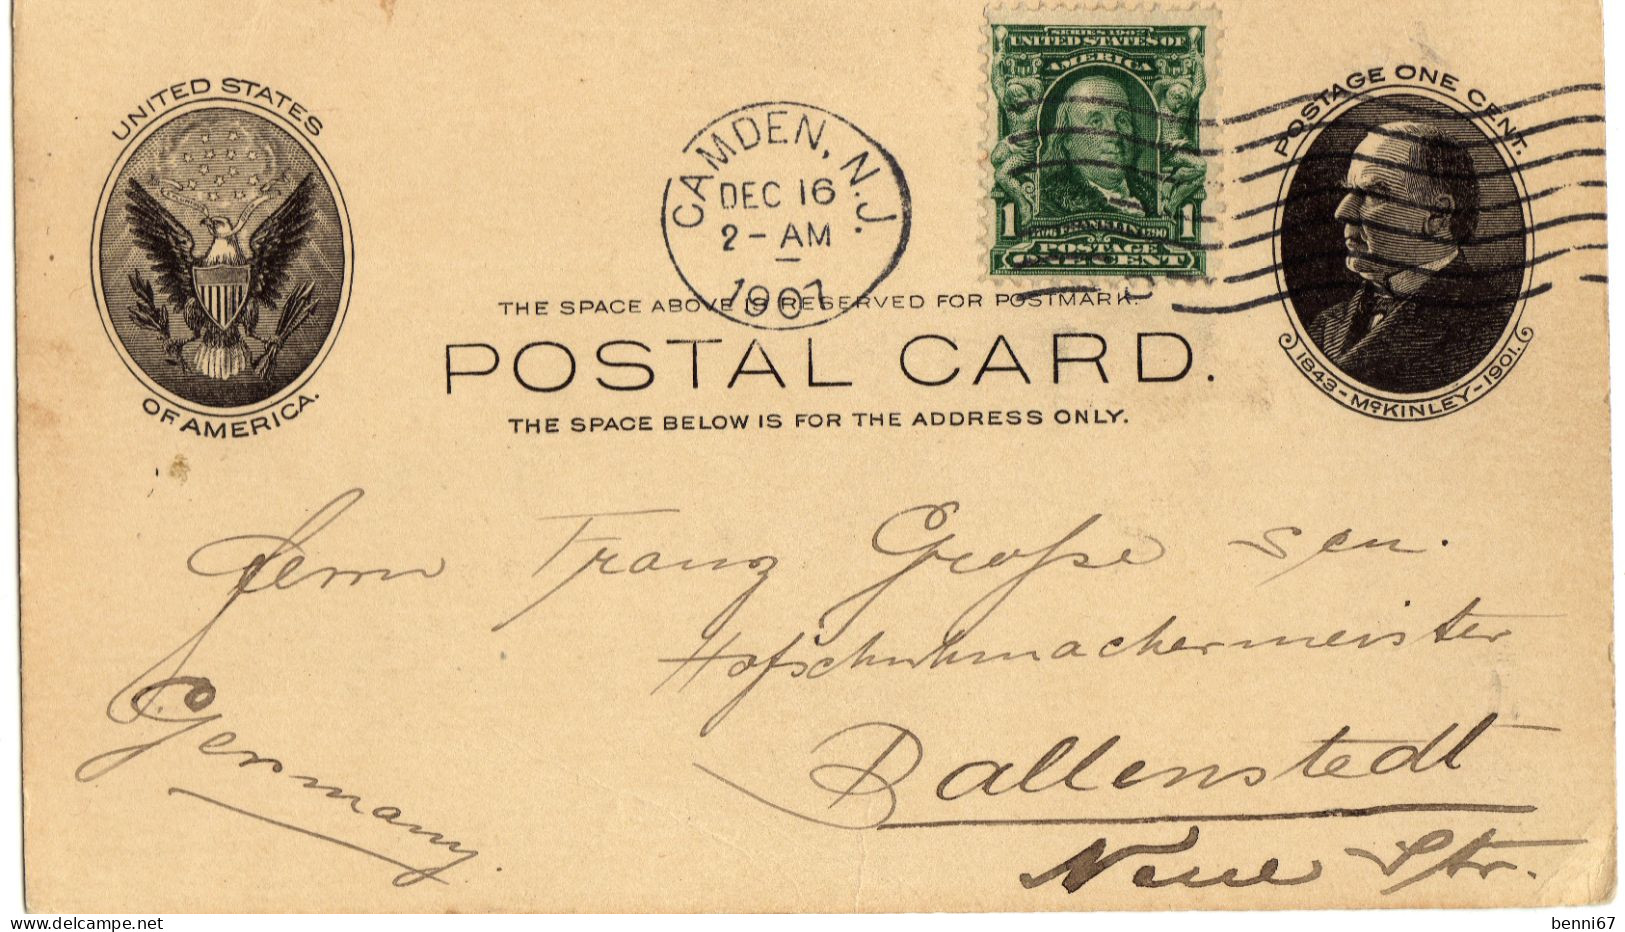 SERIES 1902
UNITED STATES OF
AMERICA
1 1
FRANKLIN
POSTAGE
ONE CENT
UNITED STATES
OF AMERICA.
CAMDEN, N.J.
DEC 16
2-AM
1907
POSTAGE ONE CENT.
1843-McKINLEY-1901.
THE SPACE ABOVE IS RESERVED FOR POSTMARK.
POSTAL CARD.
THE SPACE BELOW IS FOR THE ADDRESS ONLY.
Herrn Franz Große sen.
Hofschuhmachermeister
Ballenstedt
Neue Str.
Germany.
benni67